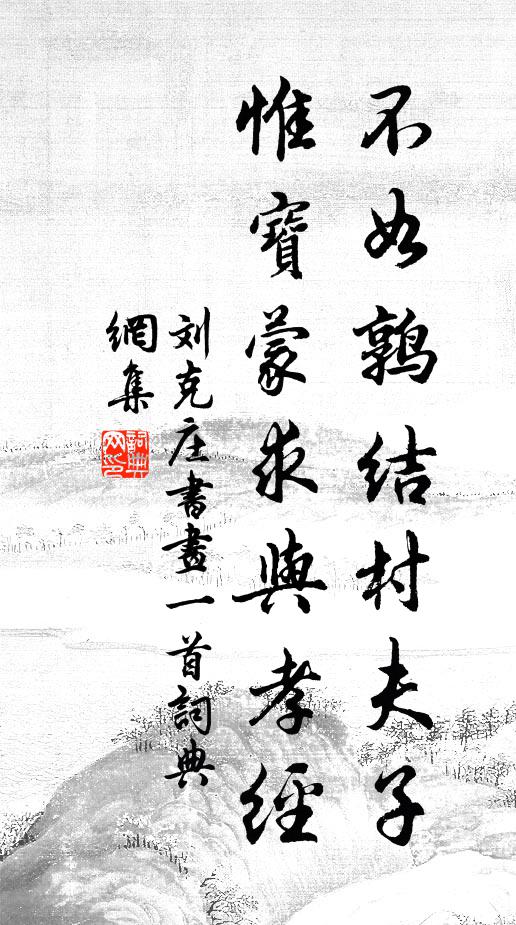 不如鹑結村夫子
惟寶蒙求與孝經
刘克庄書畫一首詞典
網集
詞典网印